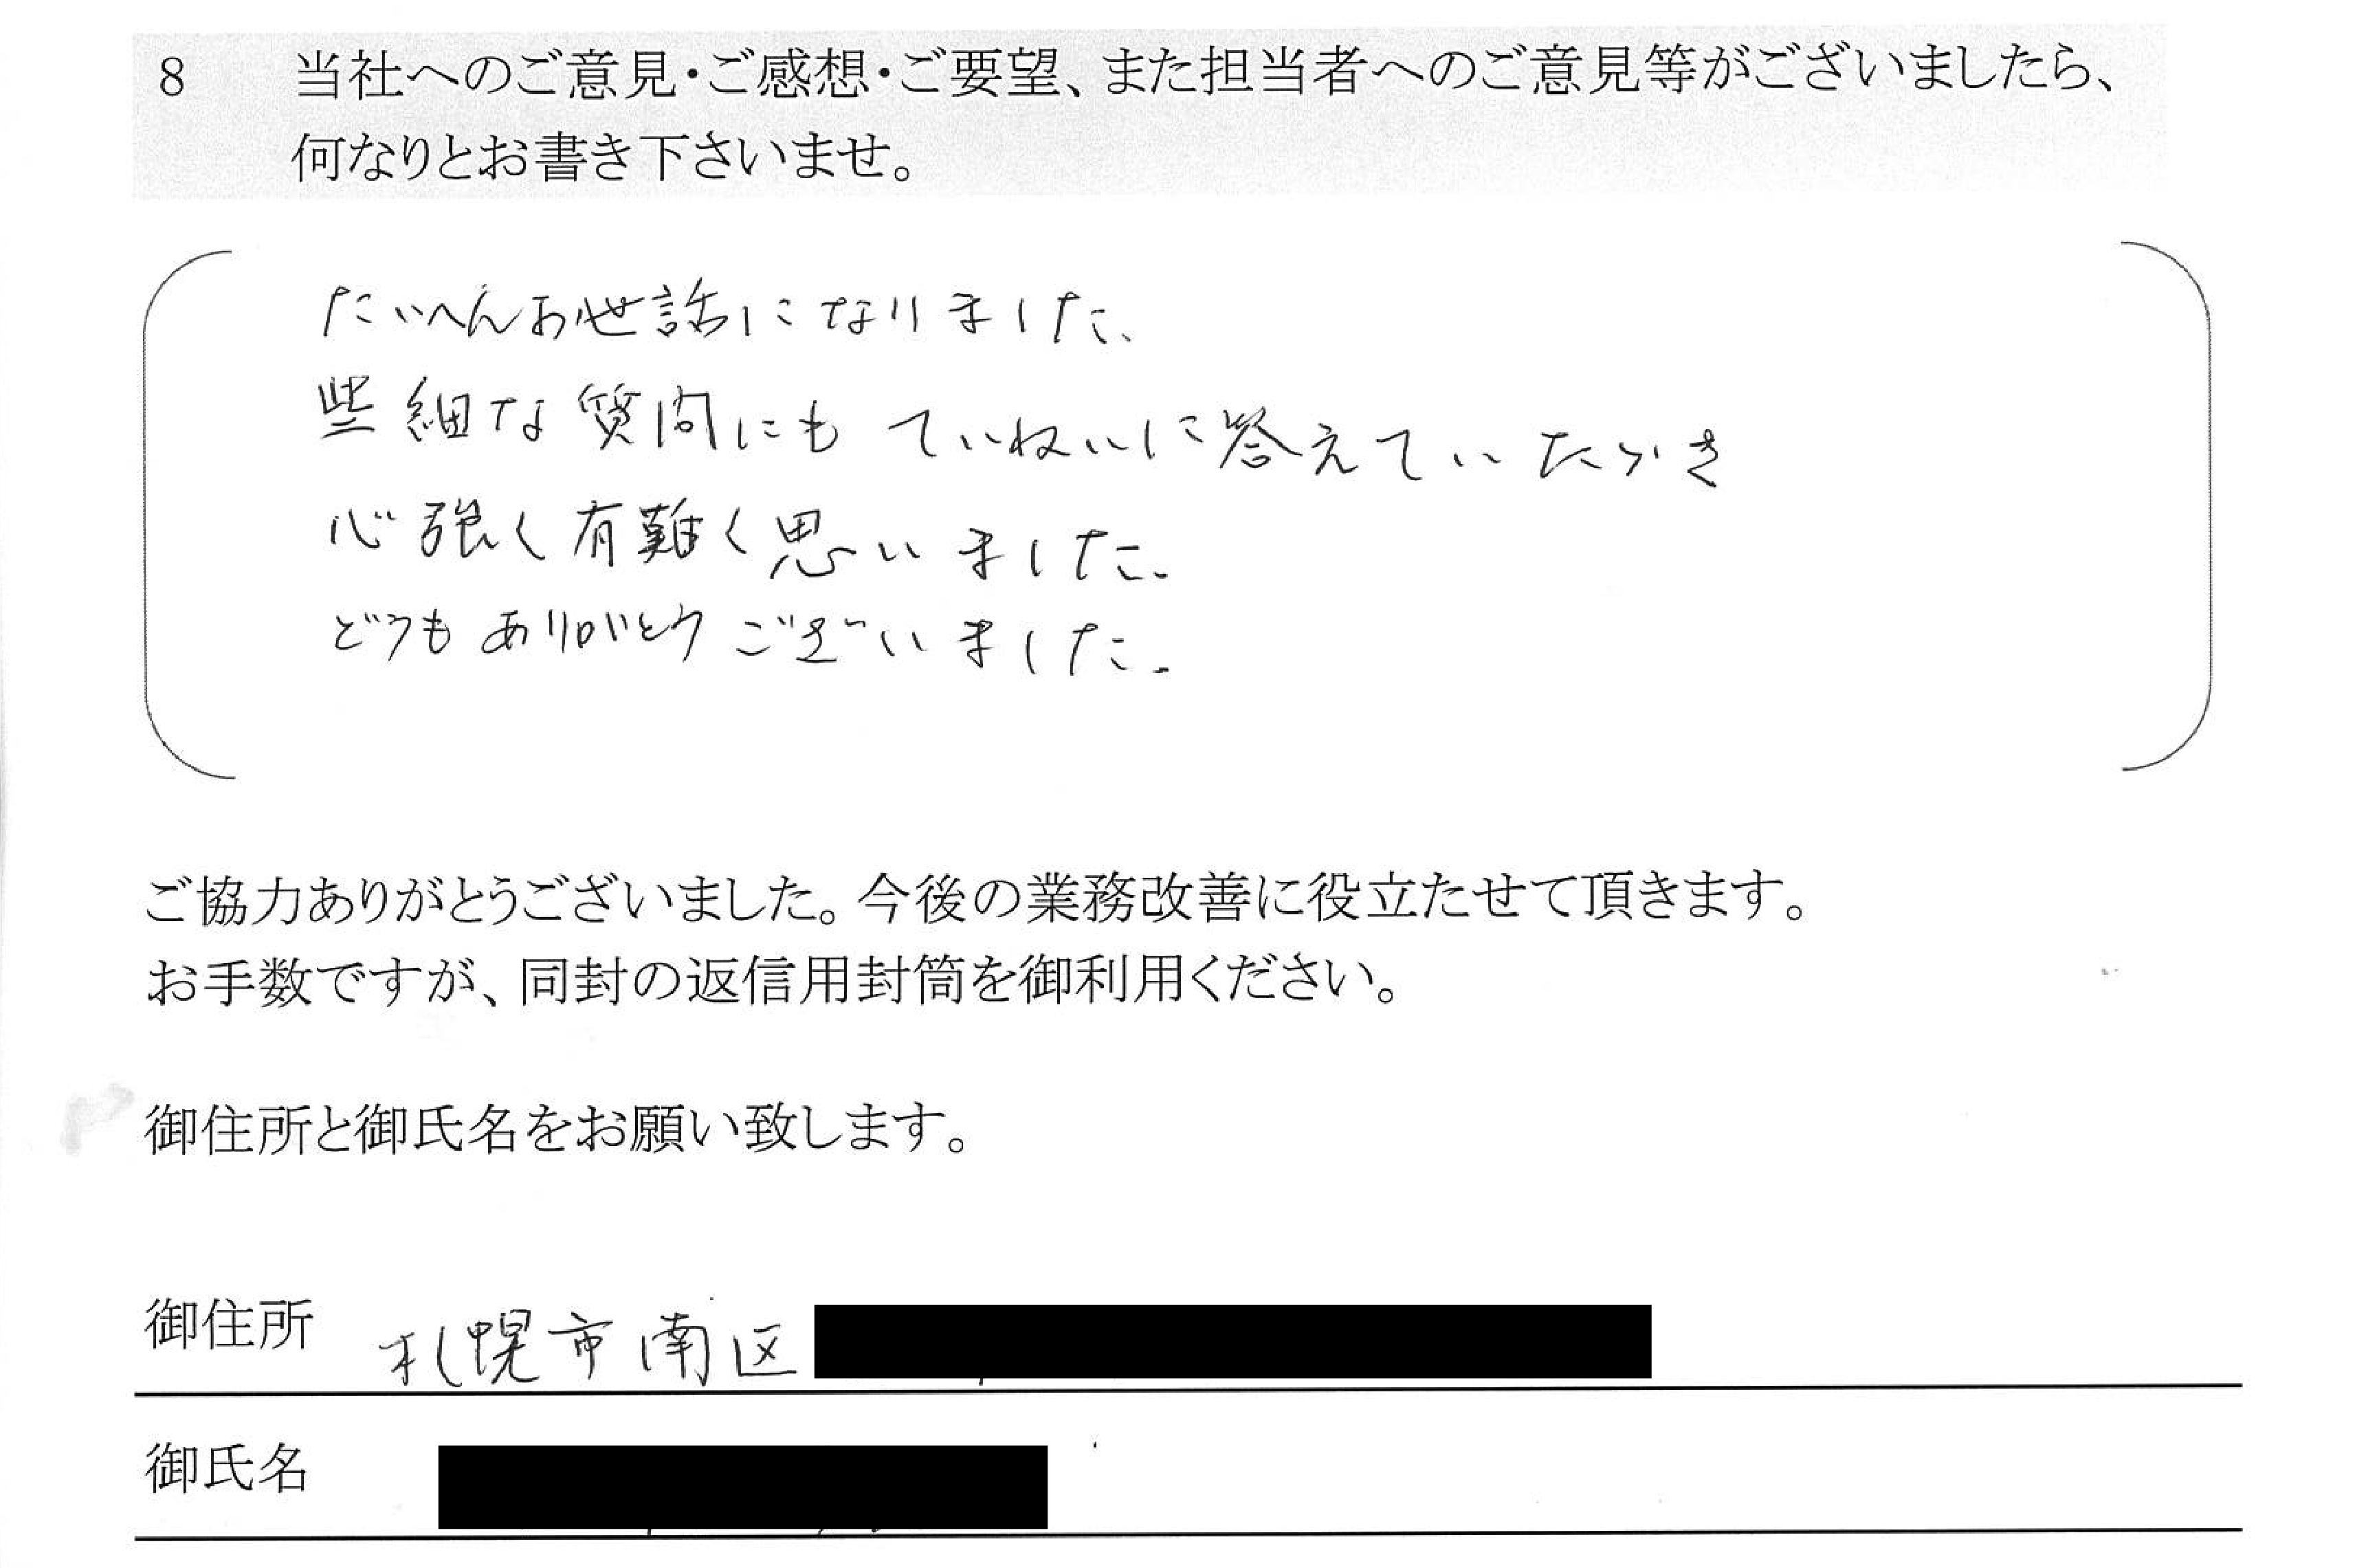 8 当社へのご意見・ご感想・ご要望、また担当者へのご意見等がございましたら、
何なりとお書き下さいませ。
たいへんお世話になりました、
些細な質問にも ていねいに答えていただき
心強く有難く思いました.
どうもありがとうございました.
ご協力ありがとうございました。今後の業務改善に役立たせて頂きます。
お手数ですが、同封の返信用封筒を御利用ください。
御住所と御氏名をお願い致します。
御住所 札幌市南区
御氏名